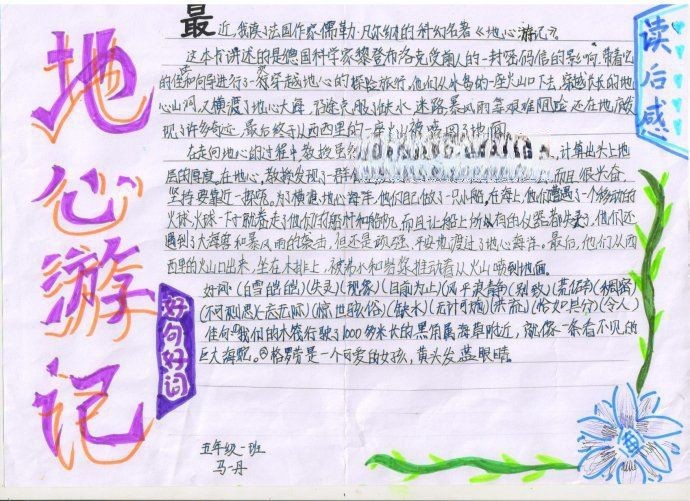 地心游记
读后感
最近,我读了法国作家儒勒·凡尔纳的科幻名著《地心游记》
这本书讲述的是德国科学家黎登布洛克受前人的一封密码信的影响,带着他
的侄和向导进行了一次穿越地心的探险旅行。他们从冰岛的一座火山口下去,穿越
山洞,又横渡了地心大海,沿途克服了缺水、迷路、暴风雨等艰难困险还在地
现了许多奇迹,最后终于从西西里的一座火山被喷回了地面
在走向地心的过程中教授 计算出头上地
层的厚度。在地心,教授发现了一群 而且很兴奋
坚持要靠近一部落。为了横渡地心海洋,他们自己做了一只小船。在海上,他们遭遇了一个移动的
火球,火球一下就卷走了他们的船桅和船帆,而且让船上所有的仪器都失灵,他们还
遇到了大海兽和暴风雨的袭击,但还是顽强、平安地渡过了地心海洋。最后,他们从西
西里的火山口出来,坐在木排上,被沸水和岩浆推动着从火山喷到地面。
好句好词
好词:(白雪皑皑)(失灵)(现象)(目前为止)(风平浪静)(别致)(荒估)(稠密)
(不可思思)(一忘无际)(惊世骇俗)(缺水)(无计可施)(洪流)(恰如其分)(令人)
佳句:①我们的木筏行驶了1000多米长的黑角属海草附近,就像一条看不见的
巨大海蛇。②格劳蓓是一个可爱的女孩,黄头发,蓝眼睛。
五年级一班
马一丹